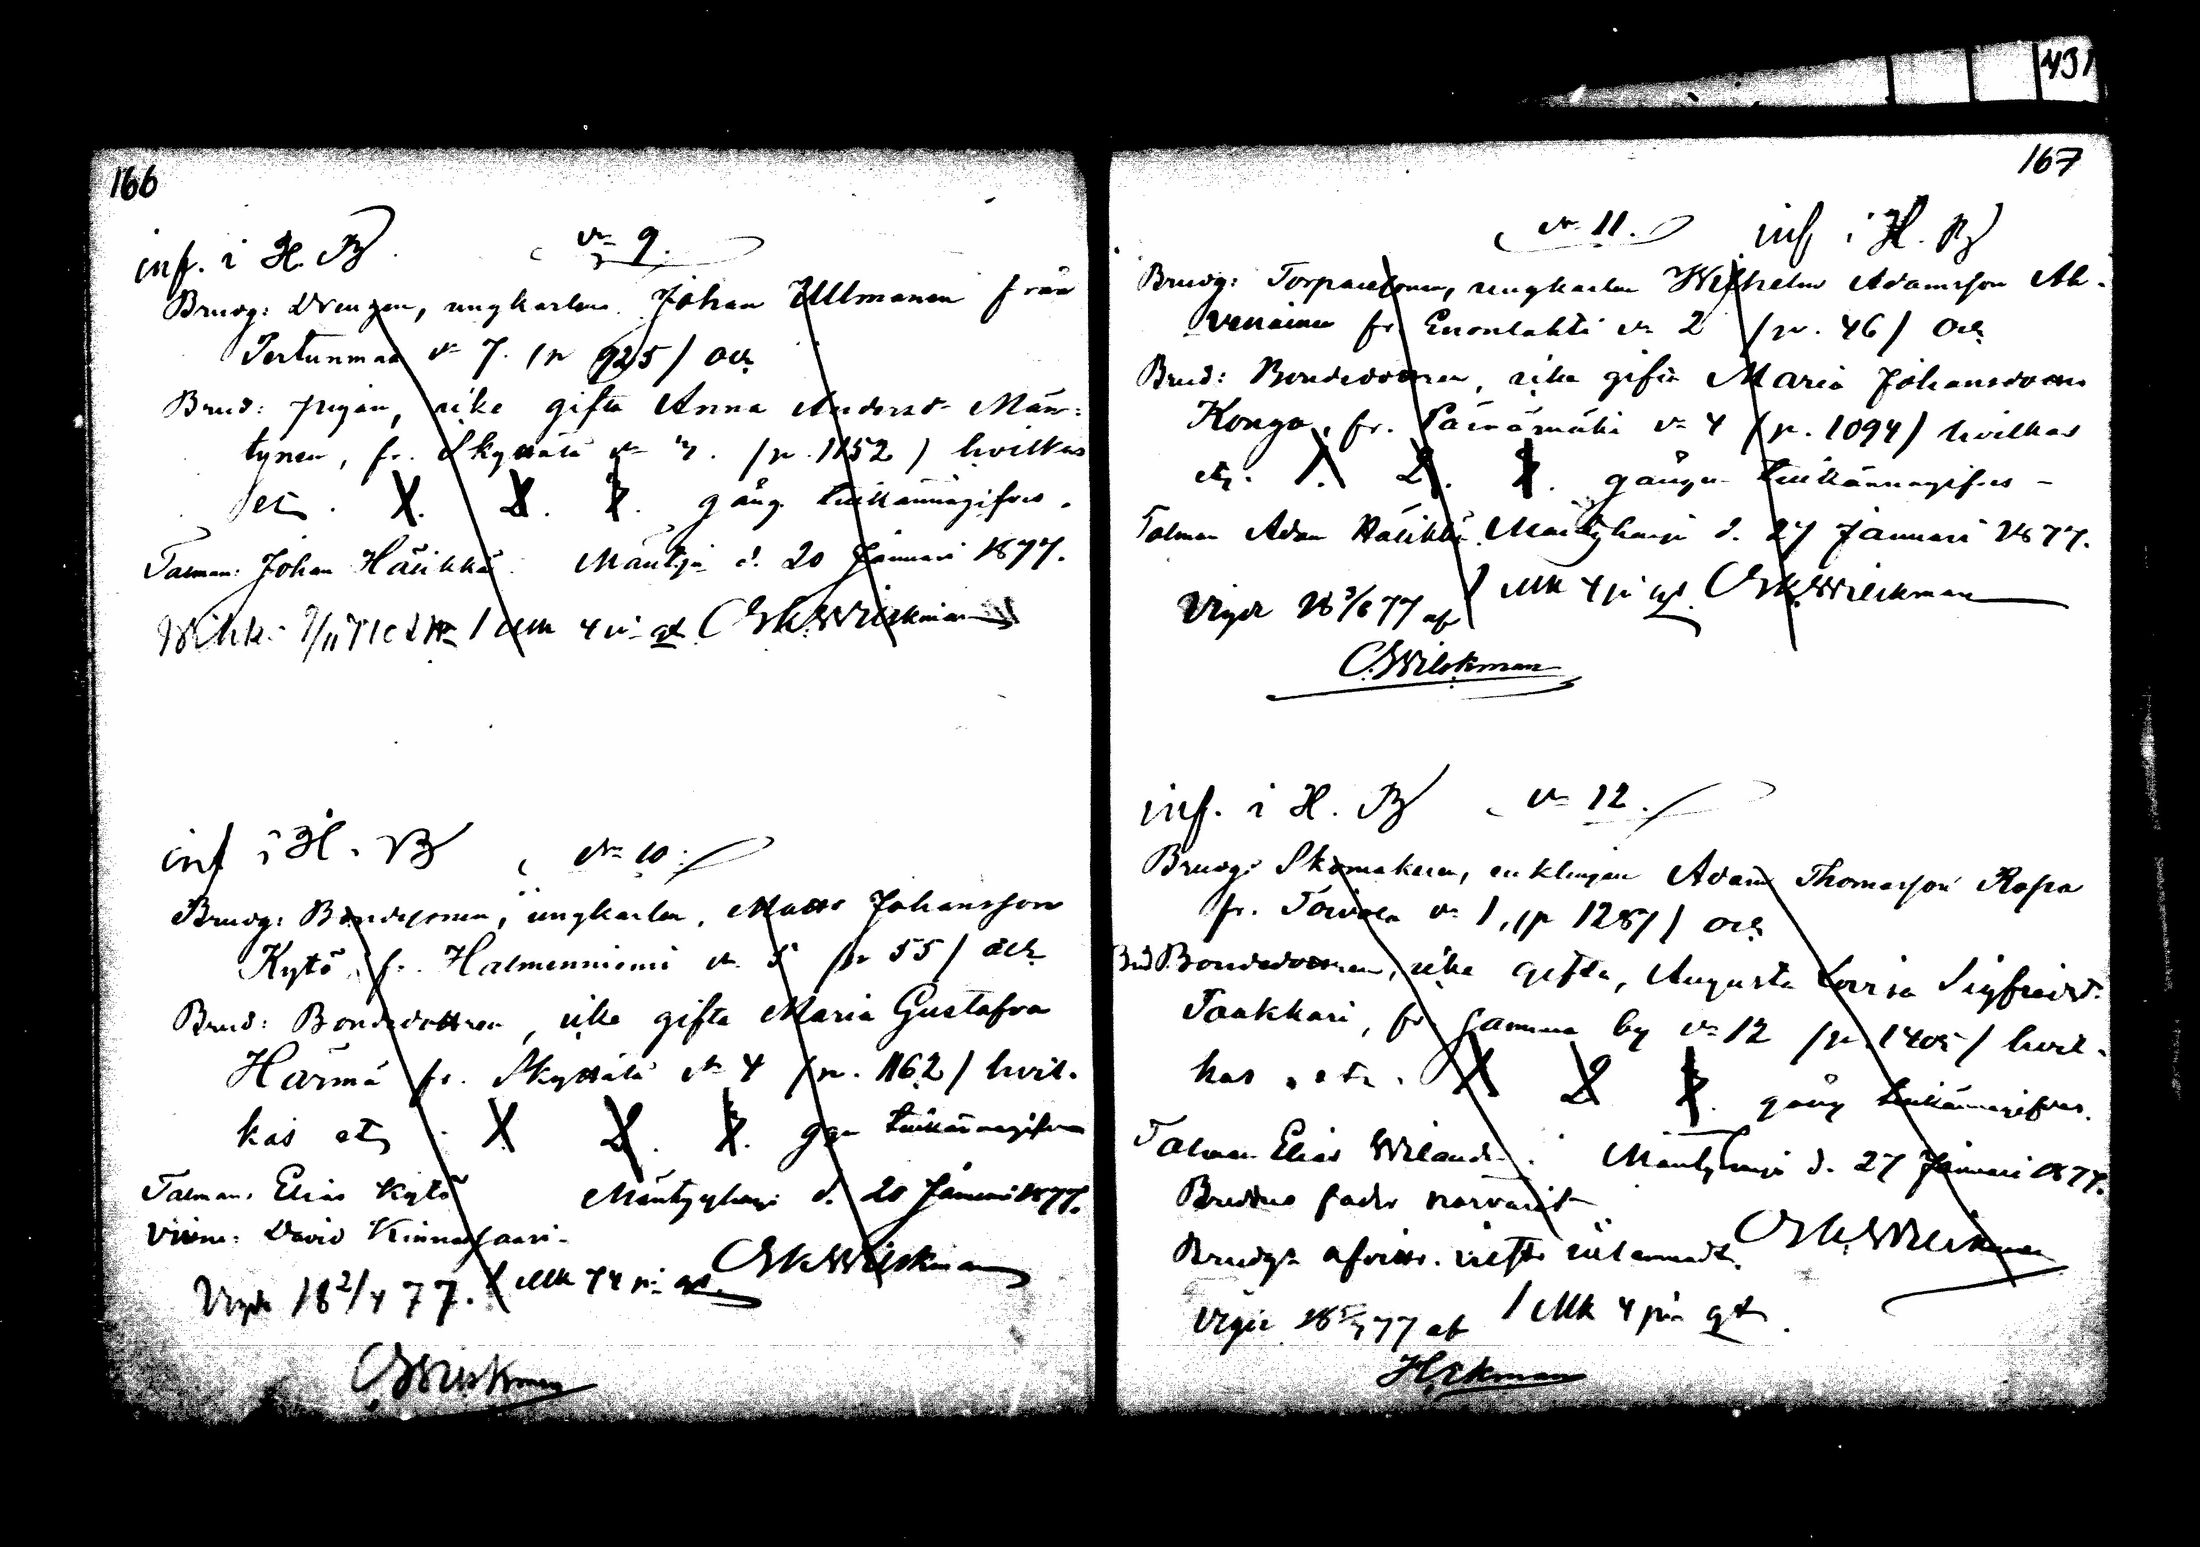 431
166
inf. i H. B
N 9.
Brudg: Drengen, ungkarlen Johan Ullmanen från
Pertunmaa N 7. (p 925) och
Brud: pigan, icke gifta Anna Andersd. Män-
tynen, fr. Skyttälä N 7. (p. 1152) hvilkas
etc. 1. 2. 3. gång tillkännagifves.
Talman: Johan Häkkä. Mäntyh. d. 20 Januari 1877.
1 Mk 4 p. gt. Osk. Wilskman
inf i H. B
N 10.
Brudg: Bondesonen, ungkarlen, Matts Johansson
Kytö, fr. Halmenniemi N 5 (p 55) och
Brud: Bondedottren, icke gifta Maria Gustafva
Härmä fr. Skyttälä N 4 (p. 1162) hvil-
kas etc. 1. 2. 3. ggn tillkännagifves
Talman: Elias Kytö Mäntyharju d. 20 Januari 1877.
Vittne: David Kinnar saari.
Osk. Wilskman
Vigde 18 2/4 77. 1 Mk 74 p. gt.
O. Wilskman
167
N 11.
inf i H. B
Brudg: Torparesonen, ungkarlen Wilhelm Adamsson Ah-
venainen fr. Enonlahti N 2 (p. 46) och
Brud: Bondedottren, icke gifta Maria Johansdotter
Konga, fr. Päinämäki N 4 (p. 1094) hvilkas
etc. 1. 2. 3. gången tillkännagifves
Talman Adam Häkkä. Mäntyharju d. 27 Januari 1877.
Vigde 18 3/6 77 af 1 Mk 4 p. gt. Osk. Wilskman
O. Wilskman
inf. i H. B
N 12.
Brudg: Skomakaren, enklingen Adam Thomasson Ropa
fr. Toivola N 1, (p 1287) och
Brud Bondedottren, icke gifta, Augusta Lovisa Sigfridsd.
Taakkari, fr. Gamma by N 12 (p. 1405) hvil-
kas etc. 1 2 3. gång tillkännagifves.
Talman Elias Wiland. Mäntyharju d. 27 Januari 1877.
Brudens fader närvarit
Brudgs afvittr. intyg inlemnadt. Osk. Wilskman
Vigde 18 5/7 77 af 1 Mk 4 pi gt.
Hickman